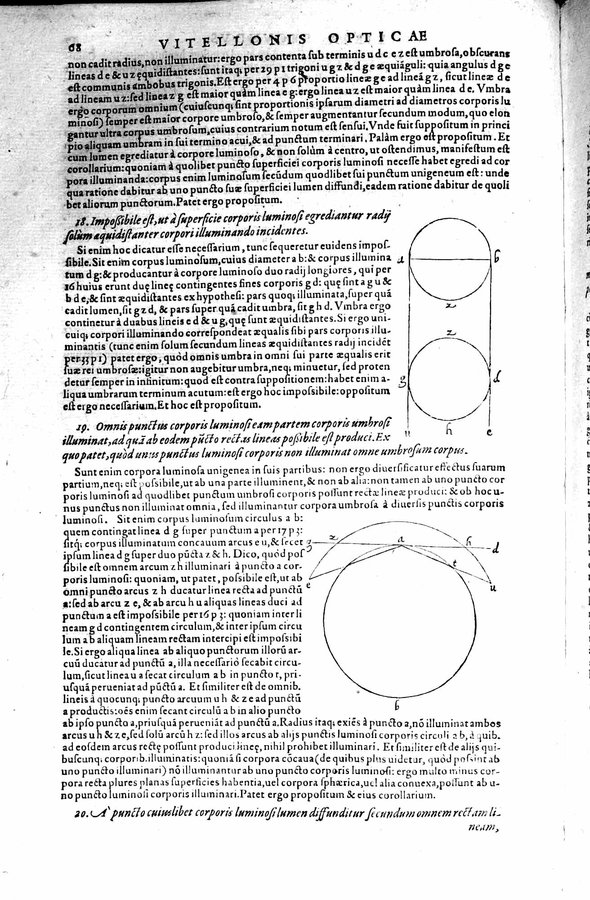 68 VITELLONIS OPTICAE
non cadit radius, non illuminatur: ergo pars contenta sub terminis u d c e z est umbrosa, obscurans
lineas d e & u z æquidistantes: sunt itaq; per 29 p 1 trigoni u g z & d g e æquiāguli: quia angulus d g e
est communis ambobus trigonis. Est ergo per 4 p 6 proportio lineæ g e ad lineā g z, sicut lineæ d e
ad lineam u z: sed linea z g est maior quàm linea e g: ergo linea u z est maior quàm linea d e. Vmbra
ergo corporum omnium (cuiuscunq; sint proportionis ipsarum diametri ad diametros corporis lu
minosi) semper est maior corpore umbroso, & semper augmentantur secundum modum, quo elon
gantur ultra corpus umbrosum, cuius contrarium notum est sensui. Vnde fuit suppositum in princi
pio aliquam umbram in sui termino acui, & ad punctum terminari. Palàm ergo est propositum. Et
cum lumen egrediatur à corpore luminoso, & non solùm à centro, ut ostendimus, manifestum est
corollarium: quoniam à quolibet puncto superficiei corporis luminosi necesse habet egredi ad cor
pora illuminanda: corpus enim luminosum secūdum quodlibet sui punctum unigeneum est: unde
qua ratione dabitur ab uno puncto suæ superficiei lumen diffundi, eadem ratione dabitur de quoli
bet aliorum punctorum. Patet ergo propositum.
18. Impossibile est, ut à superficie corporis luminosi egrediantur radij
solùm æquidistanter corpori illuminando incidentes.
Si enim hoc dicatur esse necessarium, tunc sequeretur euidens impos-
sibile. Sit enim corpus luminosum, cuius diameter a b: & corpus illumina
tum d g: & producantur à corpore luminoso duo radij longiores, qui per
16 huius erunt duę lineę contingentes fines corporis g d: quę sint a g u &
b d e, & sint æquidistantes ex hypothesi: pars quoq; illuminata, super quā
cadit lumen, sit g z d, & pars super quā cadit umbra, sit g h d. Vmbra ergo
continetur à duabus lineis e d & u g, quę sunt æquidistantes. Si ergo uni-
cuiq; corpori illuminando correspondeat æqualis sibi pars corporis illu-
minantis (tunc enim solum secundum lineas æquidistantes radij incidēt
per 33 p 1) patet ergo, quòd omnis umbra in omni sui parte æqualis erit
suæ rei umbrosæ: igitur non augebitur umbra, neq; minuetur, sed proten
detur semper in infinitum: quod est contra suppositionem: habet enim a-
liqua umbrarum terminum acutum: est ergo hoc impossibile: oppositum
est ergo necessarium. Et hoc est propositum.
a b z z g d h u e
19. Omnis punctus corporis luminosi eam partem corporis umbrosi
illuminat, ad quā ab eodem pūcto rectas lineas possibile est produci. Ex
quo patet, quòd unus punctus luminosi corporis non illuminat omne umbrosum corpus.
Sunt enim corpora luminosa unigenea in suis partibus: non ergo diuersificatur effectus suarum
partium, neq; est possibile, ut ab una parte illuminent, & non ab alia: non tamen ab uno puncto cor
poris luminosi ad quodlibet punctum umbrosi corporis possunt rectæ lineæ produci: & ob hoc u-
nus punctus non illuminat omnia, sed illuminantur corpora umbrosa à diuersis punctis corporis
luminosi. Sit enim corpus luminosum circulus a b:
quem contingat linea d g super punctum a per 17 p 3:
sitq; corpus illuminatum concauum arcus e u, & secet
ipsum linea d g super duo pūcta z & h. Dico, quòd pos
sibile est omnem arcum z h illuminari à puncto a cor-
poris luminosi: quoniam, ut patet, possibile est, ut ab
omni puncto arcus z h ducatur linea recta ad punctū
a: sed ab arcu z e, & ab arcu h u aliquas lineas duci ad
punctum a est impossibile per 16 p 3: quoniam inter li
neam g d contingentem circulum, & inter ipsum circu
lum a b aliquam lineam rectam intercipi est impossibi
le. Si ergo aliqua linea ab aliquo punctorum illorū ar-
cuū ducatur ad punctū a, illa necessariò secabit circu-
lum, sicut linea u a secat circulum a b in puncto t, pri-
usquā perueniat ad pūctū a. Et similiter est de omnib.
lineis à quocunq; puncto arcuum u h & z e ad punctū
a productis: oēs enim secant circulū a b in alio puncto
g z a h d e t u b
ab ipso puncto a, priusquā perueniāt ad punctū a. Radius itaq; exiēs à puncto a, nō illuminat ambos
arcus u h & z e, sed solū arcū h z: sed illos arcus ab alijs punctis luminosi corporis circuli a b, à quib.
ad eosdem arcus rectę possunt produci lineę, nihil prohibet illuminari. Et similiter est de alijs qui-
buscunq; corporib. illuminatis: quoniā si corpora cōcaua (de quibus plus uidetur, quòd possint ab
uno puncto illuminari) nō illuminantur ab uno puncto corporis luminosi: ergo multo minus cor-
pora recta plures planas superficies habentia, uel corpora sphærica, uel alia conuexa, possunt ab u-
no puncto luminosi corporis illuminari. Patet ergo propositum & eius corollarium.
20. A' puncto cuiuslibet corporis luminosi lumen diffunditur secundum omnem rectam li-
neam,